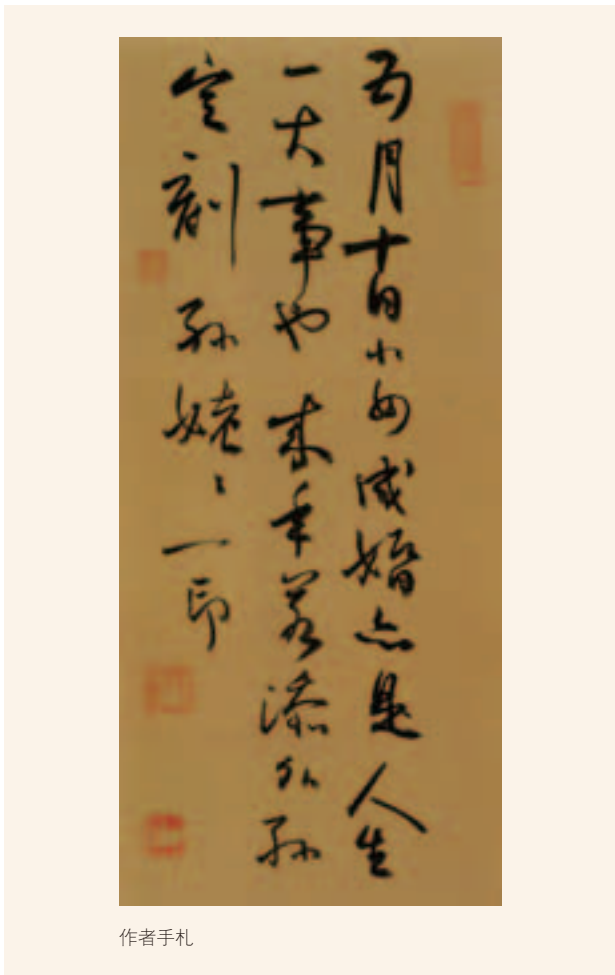 五月十日小女成婚亦是人生
一大事也来年若添外孙
定刻孙姥姥一印
作者手札